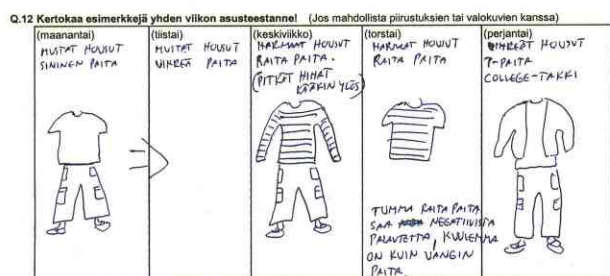 Q.12 Kertokaa esimerkkejä yhden viikon asusteestanne! (Jos mahdollista piirustuksien tai valokuvien kanssa)
(maanantai)
MUSTAT HOUSUT
SININEN PAITA
(tiistai)
MUSTAT HOUSUT
VIHREÄ PAITA
(keskiviikko)
HARMAAT HOUSUT
RAITA PAITA.
(PITKÄT HIHAT
KÄÄKIN YLÖS)
(torstai)
HARMAAT HOUSUT
RAITA PAITA
TUMMA RAITA PAITA
SAA NEGATIIVISTA
PALAUTETTA, KUULEMMA
ON KUIN VANGIN
PAITA.
(perjantai)
VIHREÄT HOUSUT
T-PAITA
COLLEGE-TAKKI